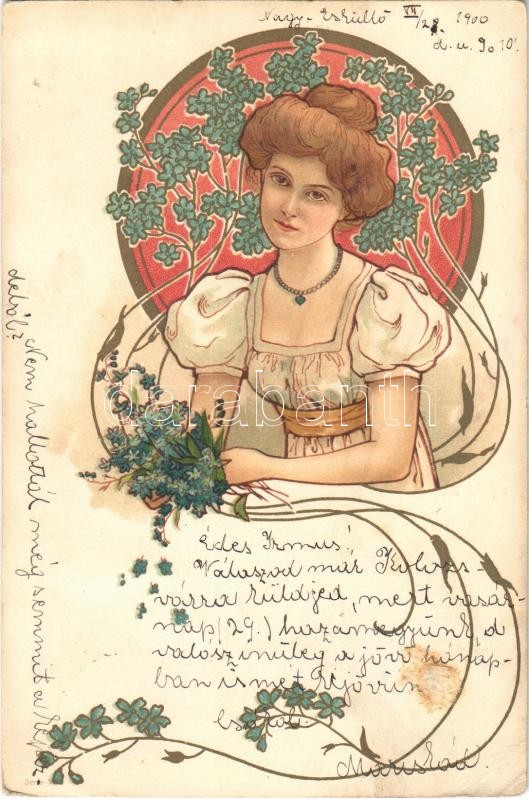 Nagy-Esküllő VII/28. 1900
d. u. 9o 10'
Édes Irmus!
Válaszod már Kolozs-
várra küldjed, mert vasár-
nap (29.) hazamegyünk, d
valószinüleg a jövő hónap-
ban ismét
csókol
Mariskád.
Nem hallottál még semmit a
darabanth